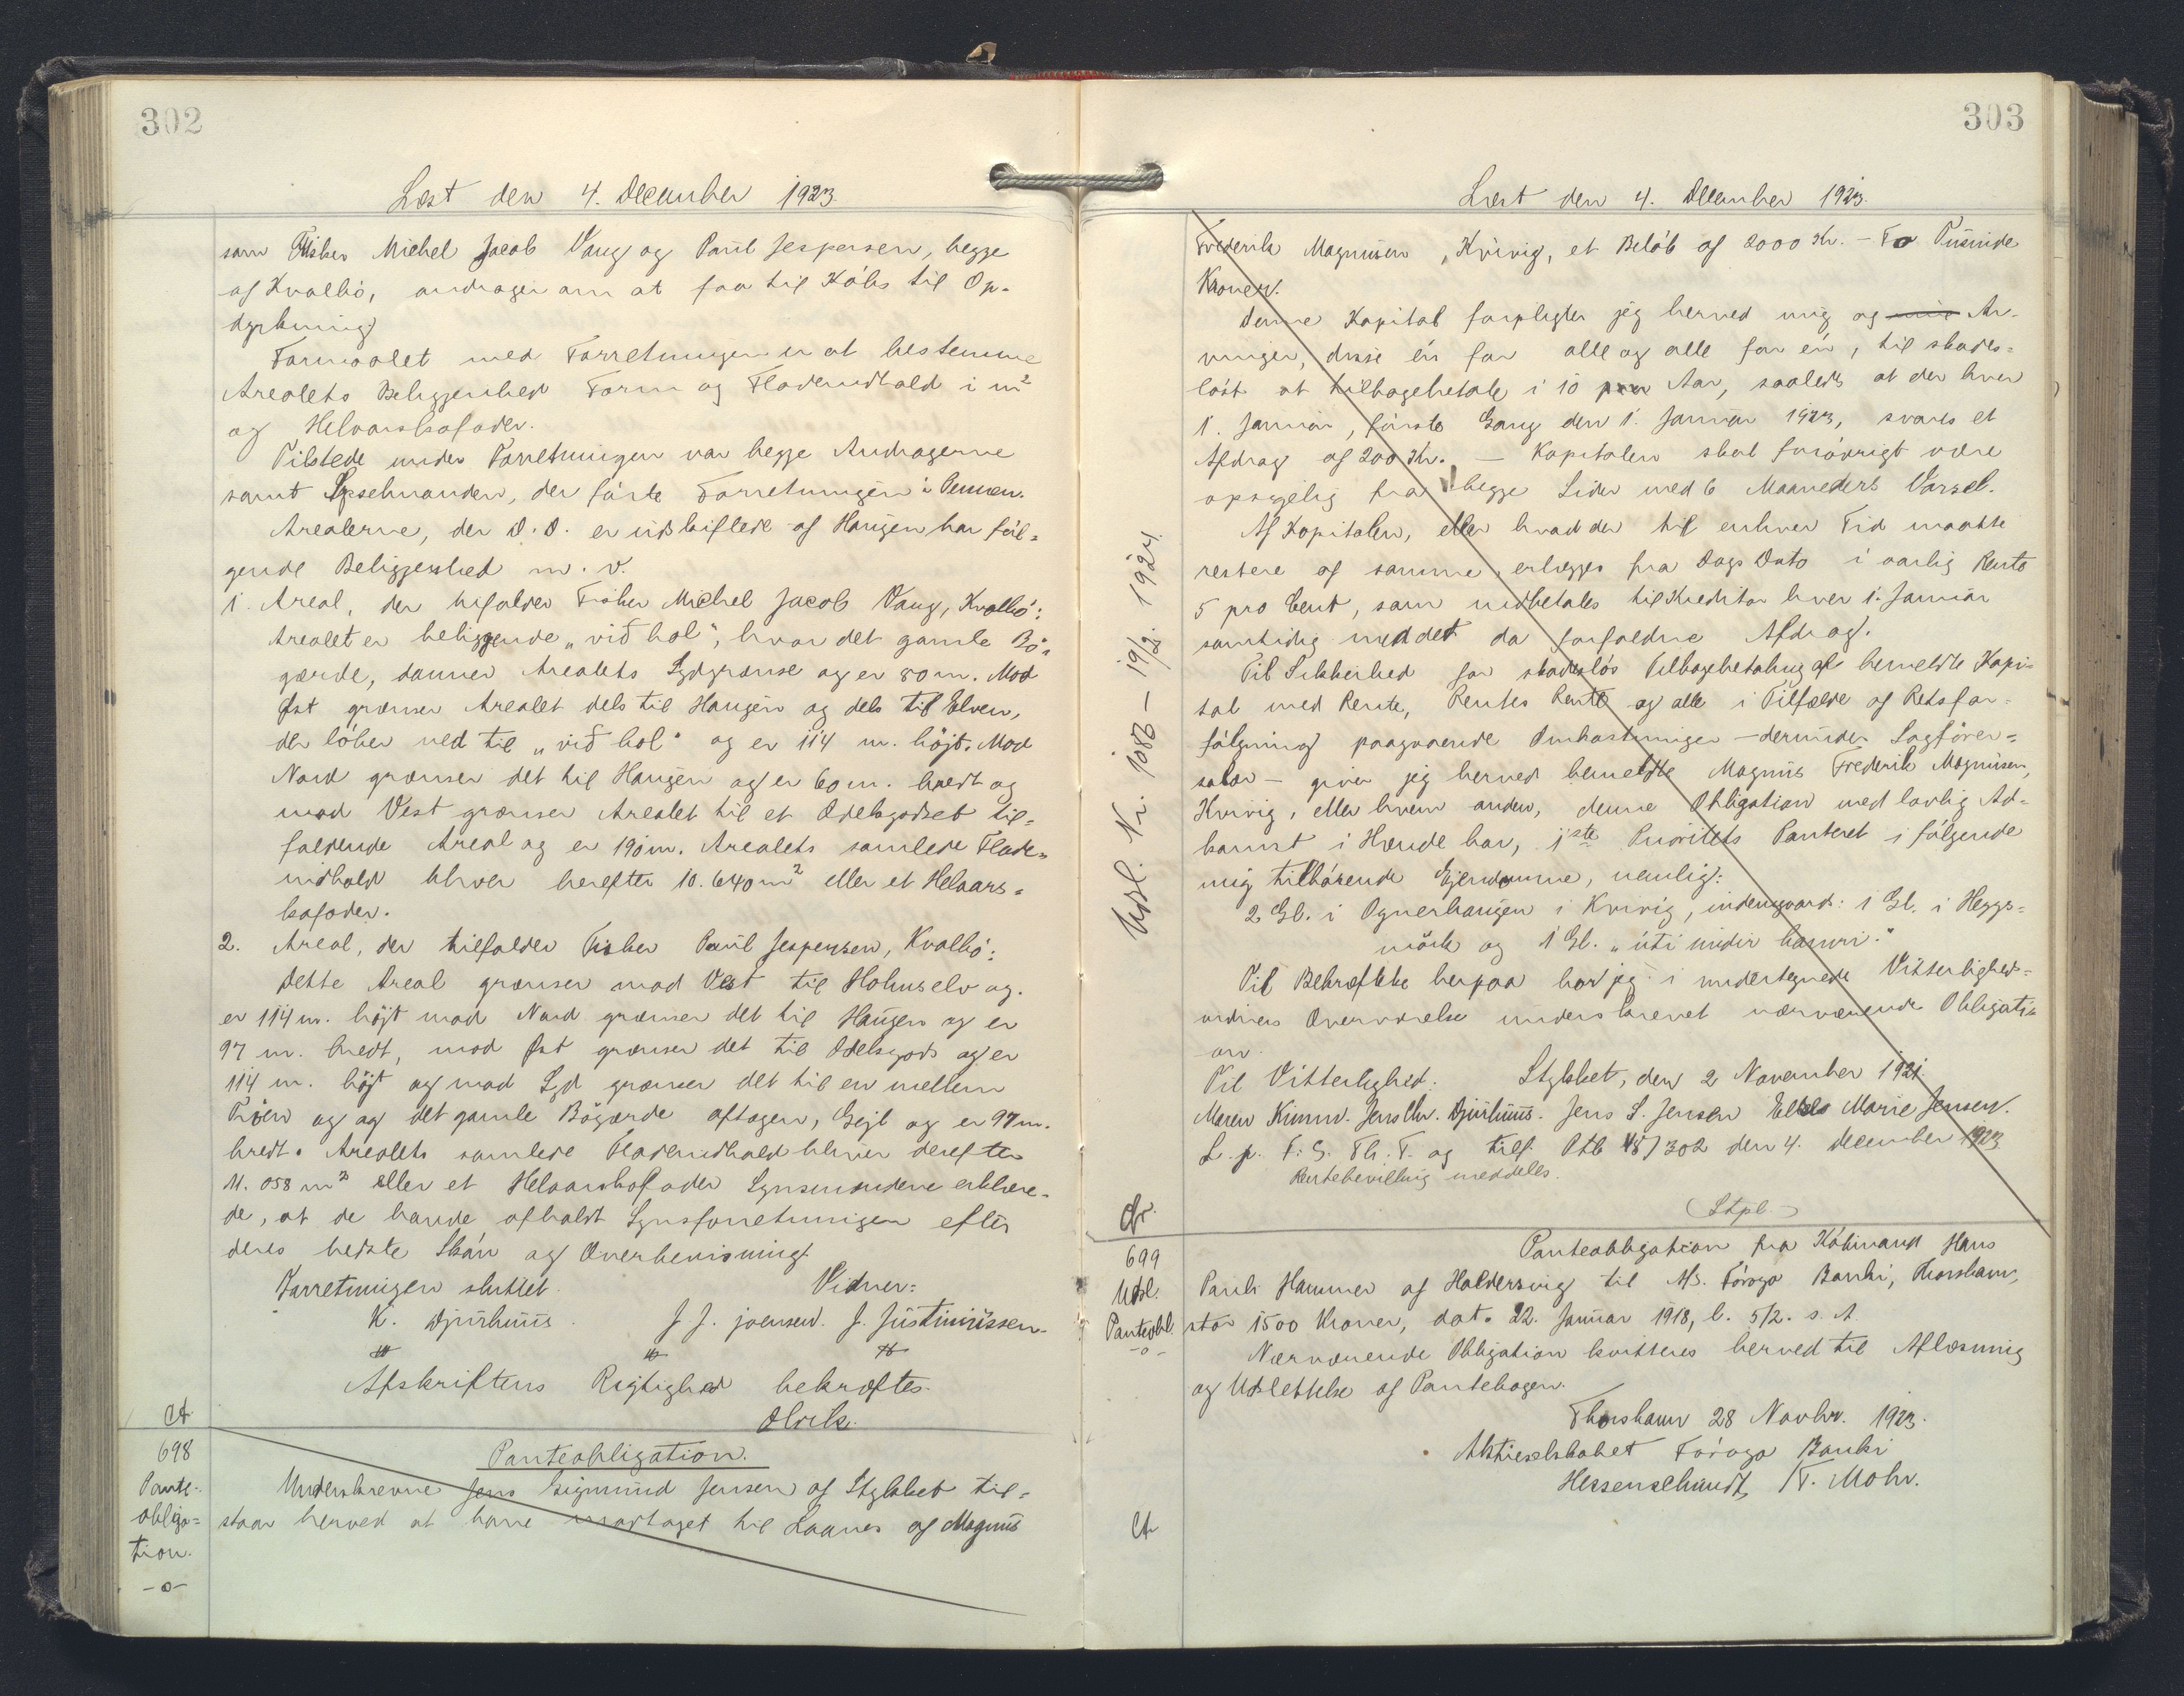 302
Læst den 4. December 1923.
som Fisker Michel Jacob Vang og Paul Jespersen, begge
af Kvalbö, andrager om at faa til Köbs til Op-
dyrkning
Formaalet med Forretningen er at bestemme
Arealets Beliggenhed Form og Fladeindhold i m²
og Helaarskofoder.
Tilstede under Forretningen var begge Andragerne
samt Sysselmanden, der förte Forretningen i Pennen.
Arealerne, der D.D. er udskiftede af Haugen har föl-
gende Beliggenhed m. v.
1. Areal, der tilfalder Fisker Michel Jacob Vang, Kvalbö:
Arealet er beliggende „við hol“, hvor det gamle Bö-
gærde, danner Arealets Sydgrænse og er 80 m. Mod
Øst grænser Arealet dels til Haugen og dels til Elven,
der löber ned til „við hol“ og er 114 m. höjt. Mod
Nord grænser det til Haugen og er 60 m. bredt og
mod Vest grænser Arealet til et Odelsgodset til-
faldende Areal og er 190 m. Arealets samlede Flade-
indhold bliver herefter 10.640 m² eller et Helaars-
kofoder.
2. Areal, der tilfalder Fisker Paul Jespersen, Kvalbö:
Dette Areal grænser mod Vest til Holmselv og
er 114 m. höjt mod Nord grænser det til Haugen og er
97 m. bredt, mod Øst grænser det til Odelsgods og er
114 m. höjt og mod Syd grænser det til en mellem
og det gamle Bögærde aftagen, Gejl og er 97 m.
bredt. Arealets samlede Fladeindhold bliver derefter
11.058 m² eller et Helaarskofoder Synsmændene erklære-
de, at de havde afholdt Synsforretningen efter
deres bedste Skön og Overbevisning.
Forretningen sluttet. Vidner:
K. Djurhuus. J. J. Joensen. J. Justinussen.
Afskriftens Rigtighed bekræftes.
Olrik.
Ct.
698
Pante-
obliga-
tion.
-o-
Panteobligation.
Underskrevne Jens Sigmund Jensen af Stylket til-
staar herved at have modtaget til Laans af Magnus
303
Læst den 4. December 1923.
Frederik Magnusen, Kvivig, et Beløb af 2000 Kr. - To Tusinde
Kroner.
Denne Kapital forpligter jeg herved mig og min Ar-
vinger, disse én for alle og alle for én, til skades-
löst at tilbagebetale i 10 Aar, saaledes at der hver
1. Januar, förste Gang den 1. Januar 1923, svares et
Afdrag af 200 Kr. — Kapitalen skal forövrigt være
opsigelig fra begge Sider med 6 Maaneders Varsel.
Af Kapitalen, eller hvad der til enhver Tid maatte
restere af samme, erlægges fra Dags Dato i aarlig Rente
5 pro Cent, som indbetales til Kreditor hver 1. Januar
samtidig med det da forfaldne Afdrag.
Til Sikkerhed for skadeslös Tilbagebetaling af bemeldte Kapi-
tal med Rente, Rentes Rente og alle i Tilfælde af Retsfor-
fölgning paagaaende Omkostninger - derunder Sagförer-
salær - giver jeg herved bemeldte Magnus Frederik Magnusen,
Kvivig, eller hvem anden, denne Obligation med lovlig Ad-
komst i Hænde har, 1ste Prioritets Panteret i fölgende
mig tilhörende Ejendomme, nemlig:
2 Gl. i Ognerhaugen i Kvivig, indengaards: 1 Gl. i Heygs-
mörk og 1 Gl. „úti undir hamri.“
Til Bekræftelse herpaa har jeg i undertegnede Vitterligheds-
vidners Overværelse underskrevet nærværende Obligati-
on.
Til Vitterlighed: Stylket, den 2 November 1921.
Maren Jens Chr. Djurhuus. Jens S. Jensen Marie Jensen.
L. p. F. S. Th. T. og tilf. Ptb 15/302 den 4. december 1923
Rentebevilling meddeles.
(Stpl.)
Udsl. Nr. 1088 - 19/2. 1924.
Cfr.
699
Udsl.
Panteobl.
-o-
Panteobligation fra Köbmand Hans
Pauli Hammer af Haldersvig til A/S. Föroya Banki, Thorshavn,
stor 1500 Kroner, dat. 22. Januar 1918, l. 5/2. s. A.
Nærværende Obligation kvitteres herved til Aflæsning
og Udslettelse af Pantebogen.
Thorshavn 28 Novbr. 1923.
Aktieselskabet Föroya Banki
Hessenschmidt, /T. Mohr.
Ct.